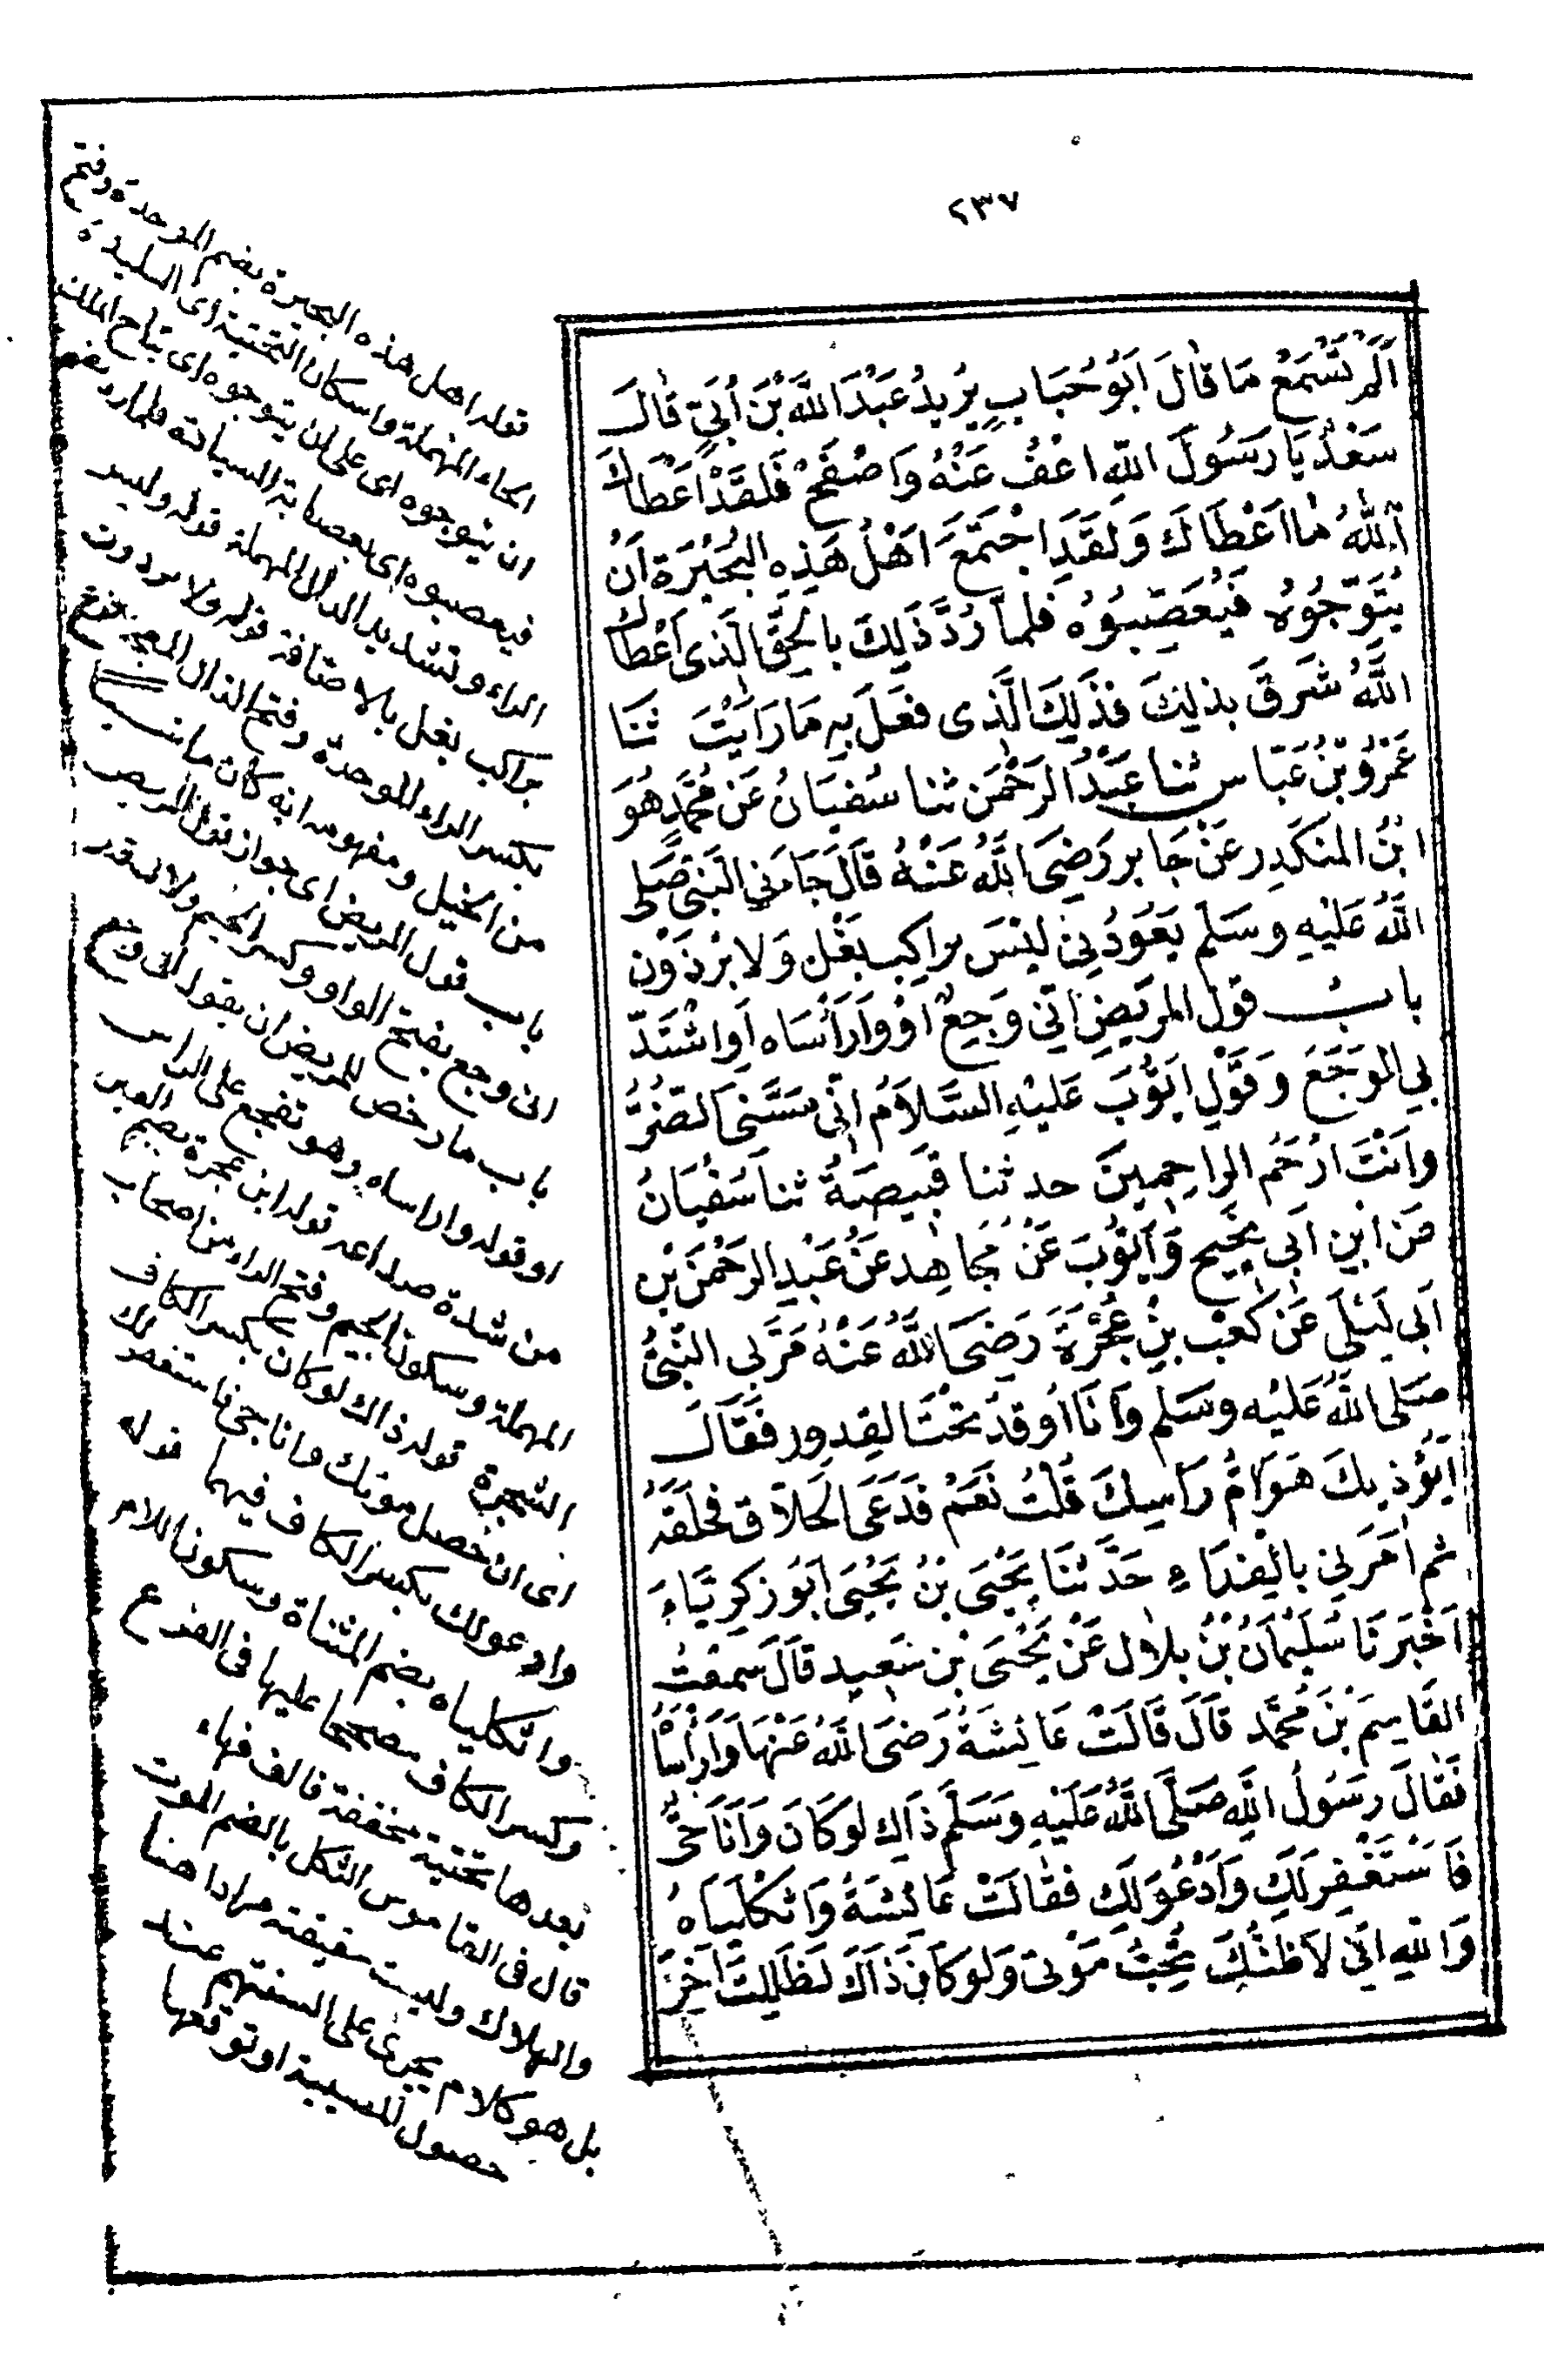 ٢٣٧
اَلَمْ تَسْمَعْ مَا قَالَ اَبُو حُبَابٍ يُرِيدُ عَبْدَ اللَّهِ بْنَ اُبَيٍّ قَالَ
سَعْدٌ يَا رَسُولَ اللَّهِ اعْفُ عَنْهُ وَاصْفَحْ فَلَقَدْ اَعْطَاكَ
اللَّهُ مَا اَعْطَاكَ وَلَقَدِ اجْتَمَعَ اَهْلُ هَذِهِ البُحَيْرَةِ اَنْ
يُتَوِّجُوهُ فَيُعَصِّبُوهُ فلما رُدَّ ذَلِكَ بِالحَقِّ الَّذى اَعْطَاكَ
اللَّهُ شَرِقَ بذلِكَ فَذَلِكَ الَّذى فَعَلَ بِهِ مَا رَاَيْتَ ثَنَا
عَمْرُو بْنُ عَبَّاسٍ ثنا عَبْدُ الرَّحْمَن ثنا سُفْيَانُ عَنْ مُحَمَّدٍ هُوَ
ابْنُ المُنكَدِرِ عَنْ جَابِرٍ رَضِيَ اللَّهُ عَنْهُ قَالَ جَاءَنِي النَّبِيُّ صَلَّى
اللَّهُ عَلَيْهِ وَسَلَّمَ يَعُودُنِي لَيْسَ بِرَاكِبِ بَغْلٍ وَلا بِرْذَوْنٍ
بابُ قَوْلِ المَرِيضِ اِنِّي وَجِعٌ اَوْ وَارَأْسَاه اَوِ اشْتَدَّ
بِي الوَجَعُ وَقَوْلِ اَيُّوبَ عَلَيْهِ السَّلَامُ اَنِّى مَسَّنِىَ الضُّرُّ
وَاَنْتَ اَرْحَمُ الرَّاحِمِينَ حدثنا قَبِيصَةُ ثنا سُفْيَانُ
عَنِ ابْنِ اَبِى نَجِيحٍ وَاَيُّوبَ عَنْ مُجَاهِدٍ عَنْ عَبْدِ الرَّحْمَنِ بْنِ
اَبِي لَيْلَى عَنْ كَعْبِ بْنِ عُجْرَةَ رَضِيَ اللَّهُ عَنْهُ مَرَّ بِى النَّبِيُّ
صَلَّى اللَّهُ عَلَيْهِ وَسَلَّمَ وَاَنَا اُوقِدُ تَحْتَ القِدْرِ فَقَالَ
اَيُؤْذِيكَ هَوَامُّ رَاْسِكَ قُلْتُ نَعَمْ فَدَعَى الحَلَّاقَ فَحَلَقَهُ
ثم اَمَرَنِي بِالفِدَاءِ حَدَّثَنَا يَحْيَى بْنُ يَحْيَى اَبُو زَكَرِيَّاءَ
اَخْبَرَنَا سُلَيْمَانُ بْنُ بِلَالٍ عَنْ يَحْيَى بْنِ سَعِيدٍ قَالَ سَمِعْتُ
القَاسِمَ بْنَ مُحَمَّد قَالَ قَالَتْ عَائِشَةُ رَضِيَ اللَّهُ عَنْهَا وَارَأْسَاهْ
فَقَالَ رَسُولُ اللَّهِ صَلَّى اللَّهُ عَلَيْهِ وَسَلَّمَ ذَاكِ لَوْ كَانَ وَاَنَا حَيٌّ
فَاَسْتَغْفِرَ لَكِ وَاَدْعُوَ لَكِ فَقَالَتْ عَائِشَةُ وَاثُكْلِيَاهُ
وَاللَّهِ اِنِّي لَاَظُنُّكَ تُحِبُّ مَوْتِى وَلَوْ كَانَ ذَاكَ لَظَلِلْتَ آخِرَ
قوله اهل هذه البحيرة بضم الموحدة وفتح
الحاء المهملة واسكان التحتية اى البليدة
ان يتوجوه اى على ان يتوجوه اى بتاج الملك
فيعصبوه اى بعصابة السيادة فلما رد بضم
الراء وتشديد الدال المهملة قوله وليس
براكب بغل بالاضافة قوله ولا برذون
بكسر الراء الموحدة وفتح الذال المعجمة نوع
من الخيل ومفهومه انه كان ماشيا
باب قول المريض اى جواز قول المريض
انى وجع بفتح الواو وكسر الجيم ولا بى ذر
باب ما رخص للمريض ان يقول انى وجع
او قوله واراساه وهو تفجع على الراس
من شدة صداعه قوله ابن عجرة بضم العين
المهملة وسكون الجيم وفتح الراء من اصحاب
الشجرة قوله ذاك لو كان بكسر الكاف
اى ان حصل موتك وانا حى فاستغفر لك
وادعو لك بكسر الكاف فيهما قوله
واثكلياه بضم المثناة وسكون اللام
وكسر الكاف مصححا عليها فى الفرع
بعدها تحتية مخففة فالف فهاء
قال فى القاموس الثكل بالضم الموت
والهلاك وليست حقيقته مرادا هنا
بل هو كلام يجرى على السنتهم عند
حصول المصيبة او توقعها